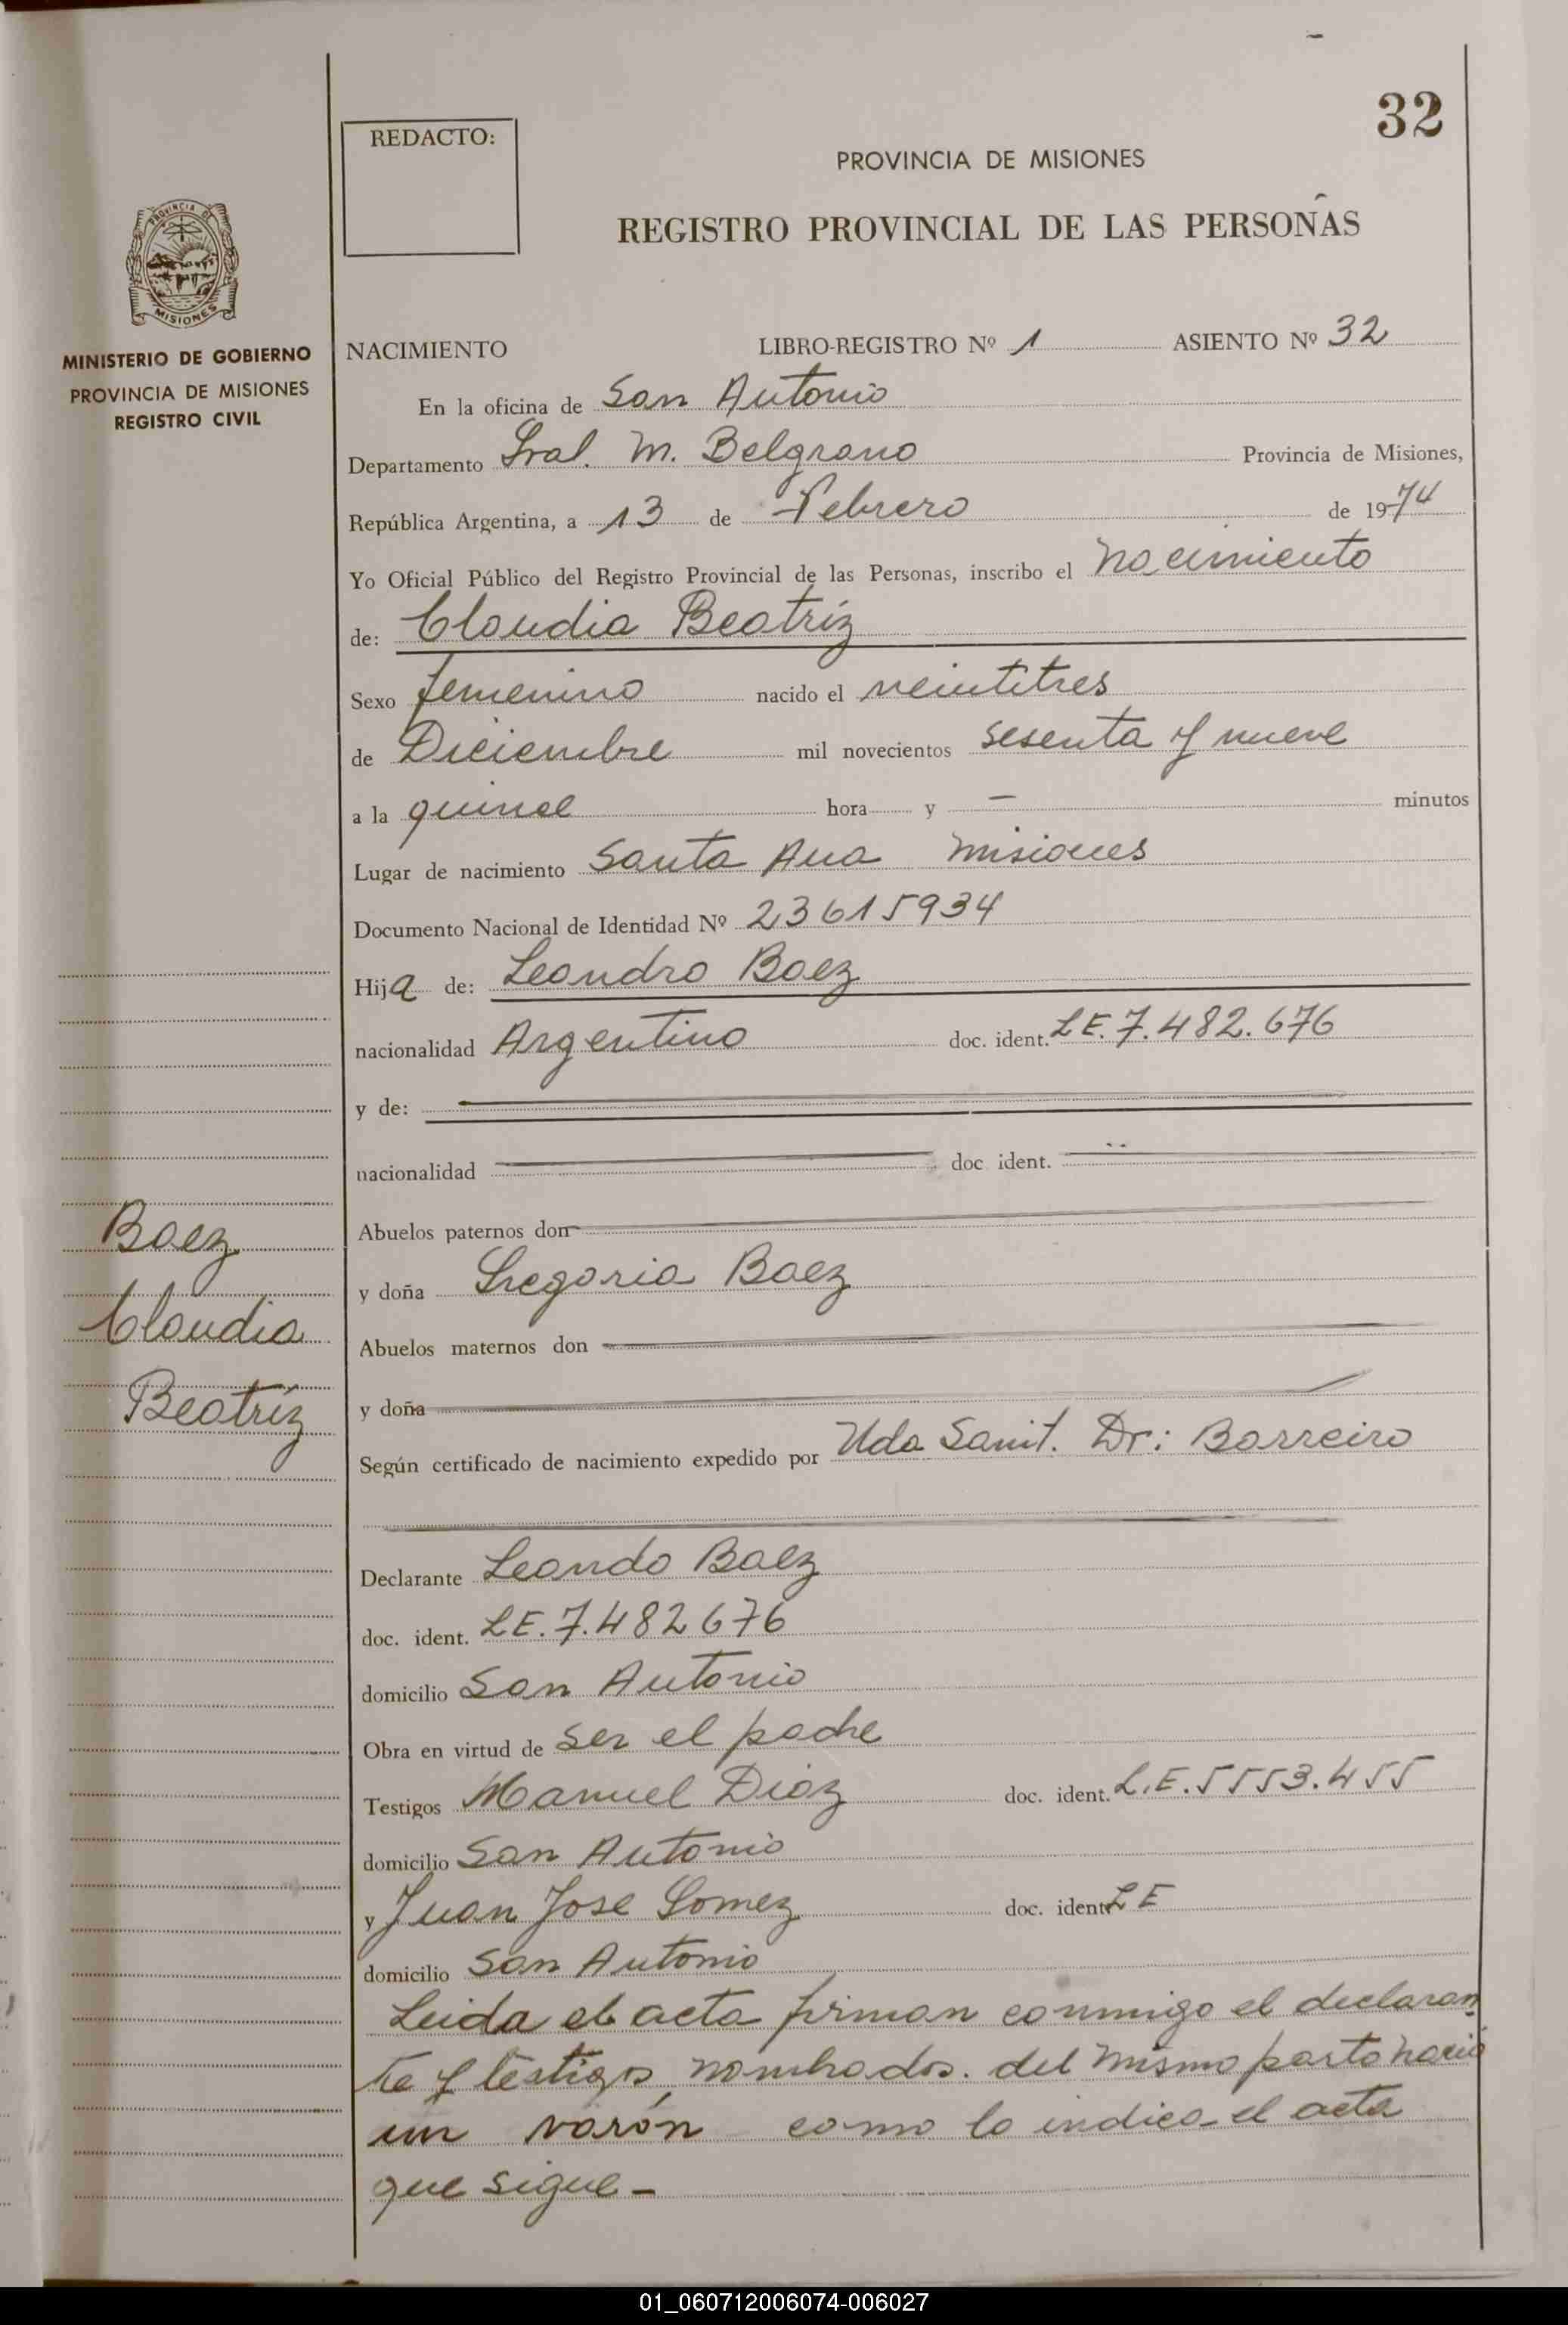 32
REDACTO:
PROVINCIA DE MISIONES
REGISTRO PROVINCIAL DE LAS PERSONAS
PROVINCIA DE
MISIONES
MINISTERIO DE GOBIERNO
PROVINCIA DE MISIONES
REGISTRO CIVIL
NACIMIENTO LIBRO-REGISTRO Nº 1 ASIENTO Nº 32
En la oficina de San Antonio
Departamento Gral. M. Belgrano Provincia de Misiones,
República Argentina, a 13 de Febrero de 1974
Yo Oficial Público del Registro Provincial de las Personas, inscribo el nacimiento
de: Claudia Beatríz
Sexo femenino nacido el veintitres
de Diciembre mil novecientos sesenta y nueve
a la quince hora y — minutos
Lugar de nacimiento Santa Ana Misiones
Documento Nacional de Identidad Nº 23615934
Hija de: Leandro Baez
nacionalidad Argentino doc. ident. LE. 7.482.676
y de:
nacionalidad doc ident.
Abuelos paternos don
y doña Gregoria Baez
Abuelos maternos don
y doña
Baez
Claudia
Beatríz
Según certificado de nacimiento expedido por Uda Sanit. Dr: Barreiro
Declarante Leando Baez
doc. ident. LE. 7.482.676
domicilio San Antonio
Obra en virtud de ser el padre
Testigos Manuel Diaz doc. ident. L.E. 5553.455
domicilio San Antonio
y Juan Jose Gomez doc. ident LE
domicilio San Antonio
Leida el acta firman conmigo el declaran
te y testigos nombrados. del mismo parto nació
un varón como lo indica el acta
que sigue -
01_060712006074-006027